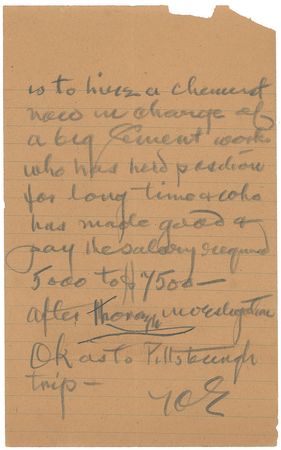 is to hire a chemist
now in charge of
a big Cement works
who has held position
for long time & who
has made good &
pay the salary required
5000 to $7500—
after thorough investigation
Ok as to Pittsburgh
trip—